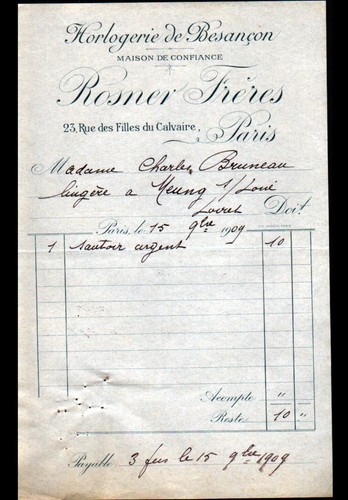 Horlogerie de Besançon
MAISON DE CONFIANCE
Rosner Frères
23, Rue des Filles du Calvaire, Paris
Madame Charles Bruneau
lingère a Meung s/Loire
Loiret Doit
Paris, le 15 9bre 1909
1 sautoir argent 10
Acompte "
Reste 10 "
Payable 3 fcs le 15 9bre 1909